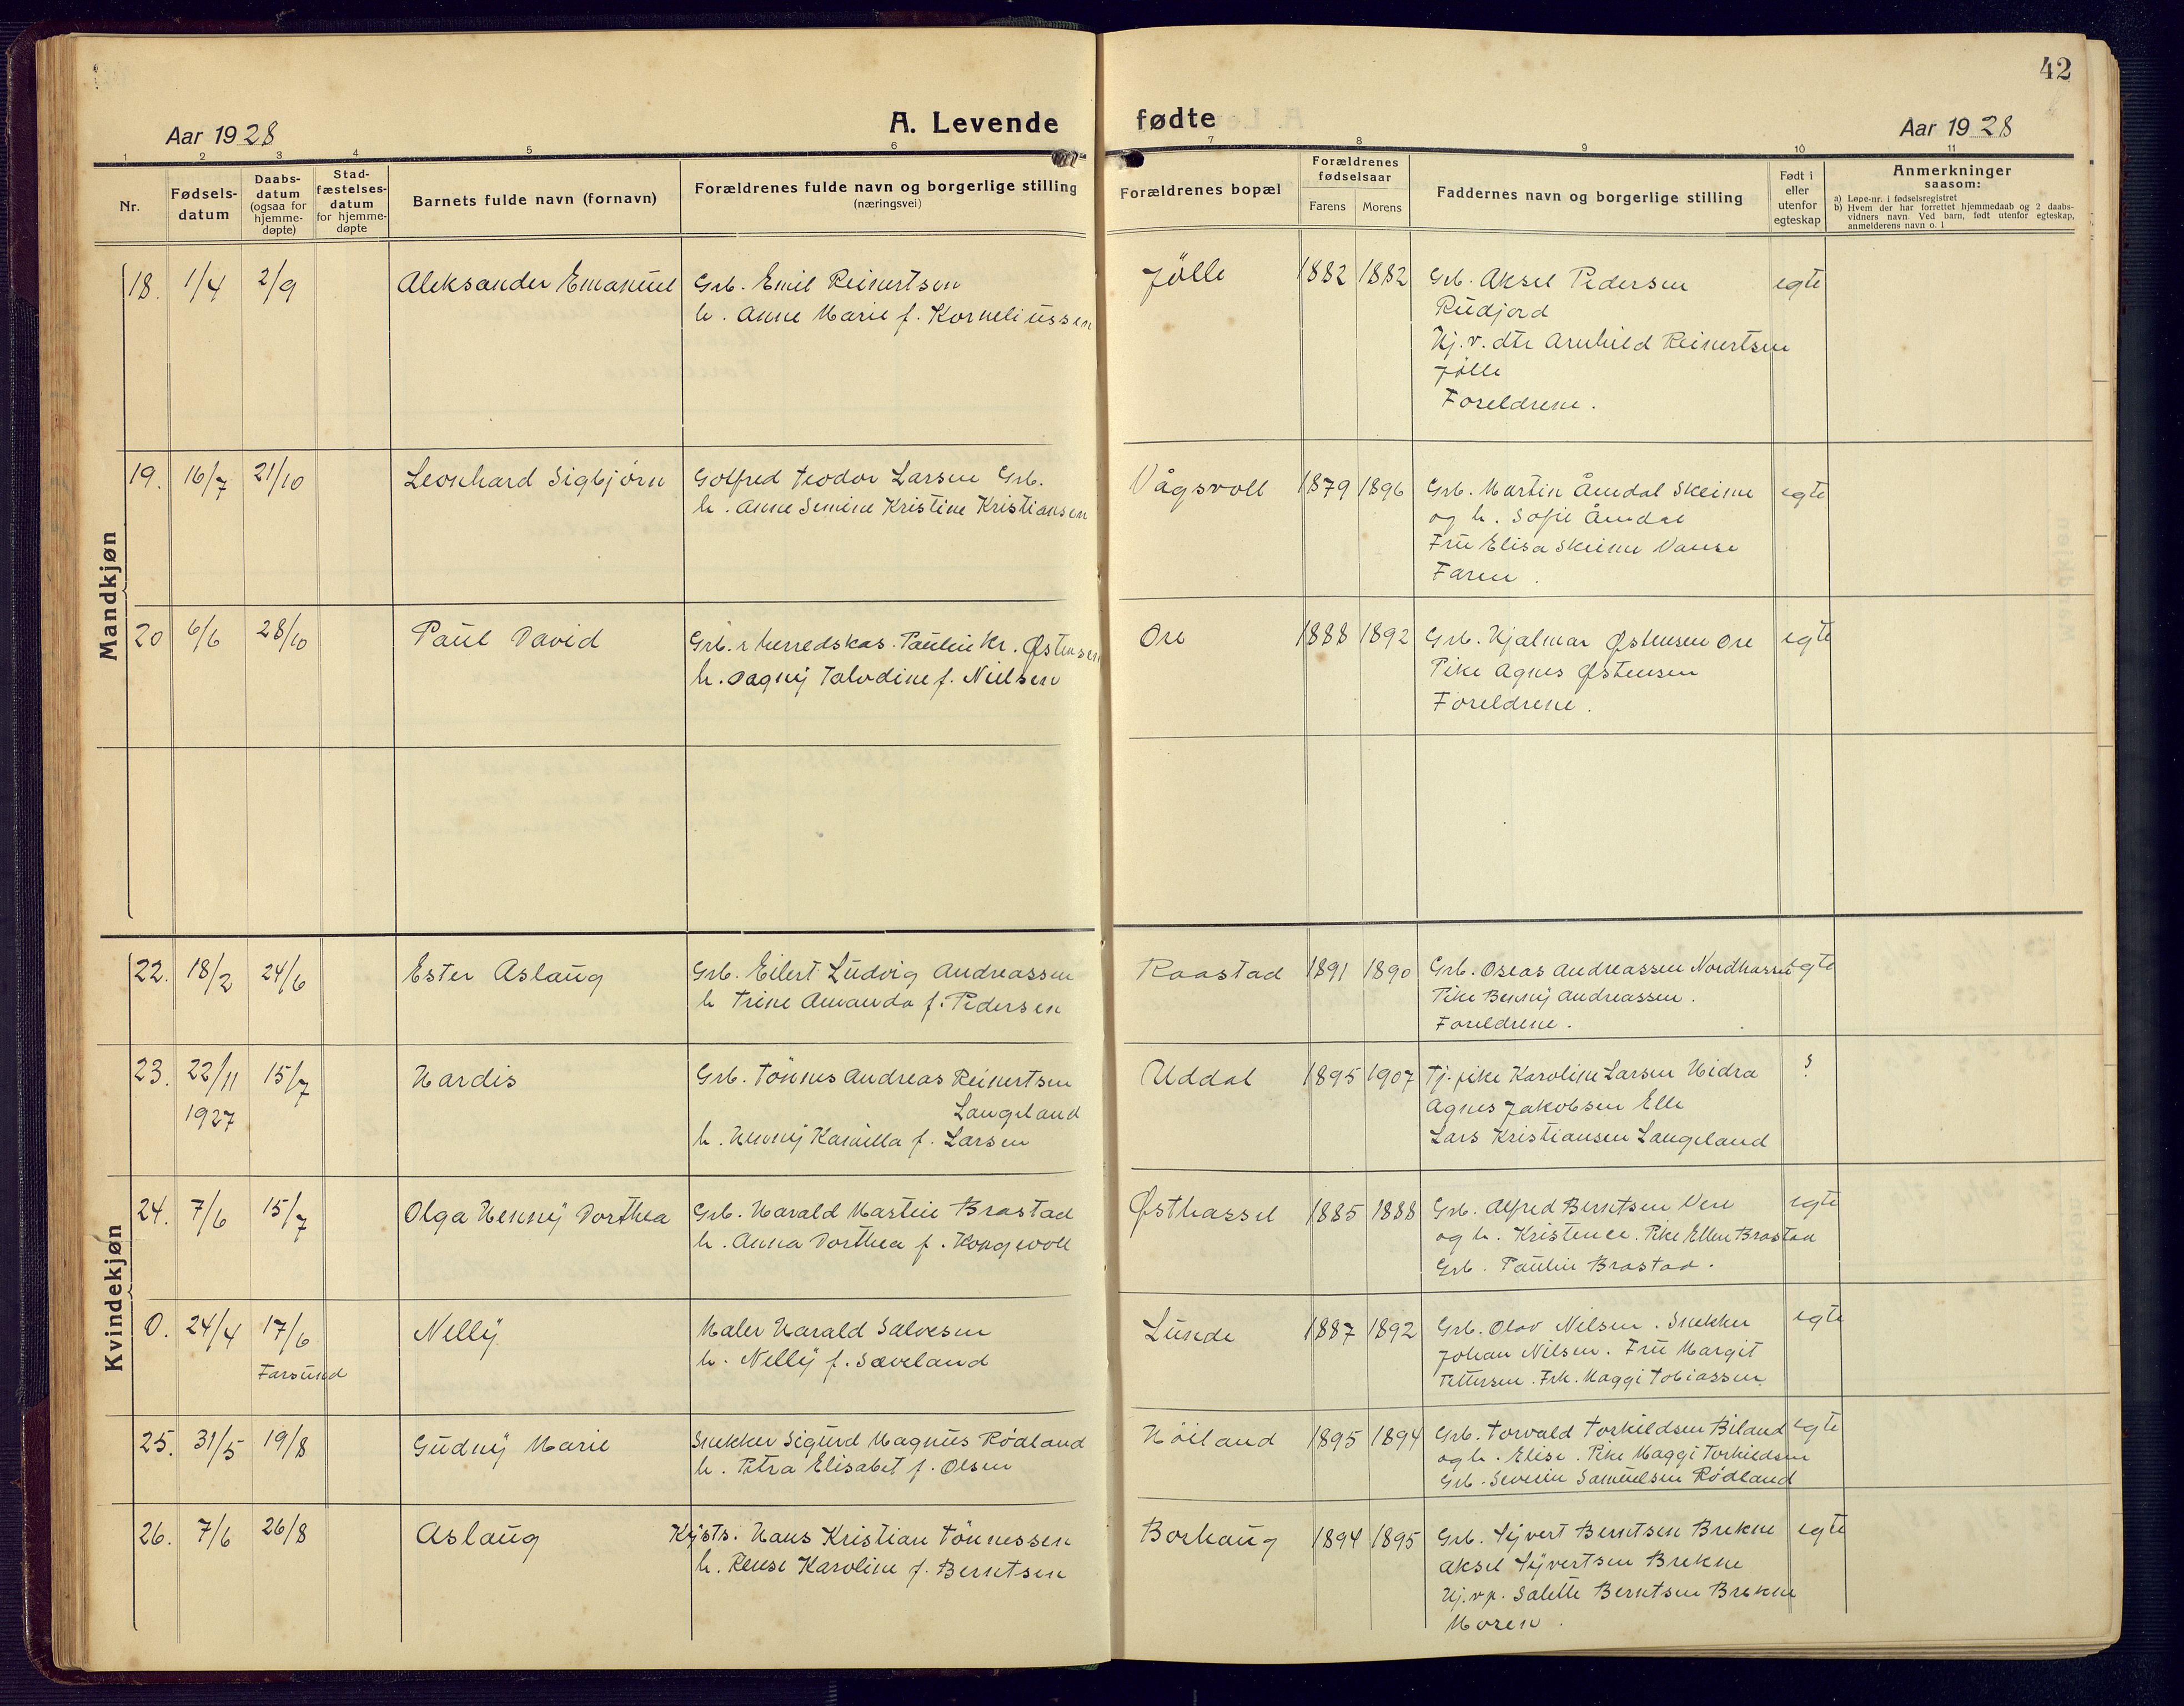 42
Aar 1928
A. Levende
fødte
Aar 1928
1 2 3 4 5 6 7 8 9 10 11
Nr.
Fødsels-
datum
Daabs-
datum
(ogsaa for
hjemme-
døpte)
Stad-
fæstelses-
datum
for hjemme-
døpte
Barnets fulde navn (fornavn)
Forældrenes fulde navn og borgerlige stilling
(næringsvei)
Forældrenes bopæl
Forældrenes
fødselsaar
Farens
Morens
Faddernes navn og borgerlige stilling
Født i
eller
utenfor
egteskap
Anmerkninger
saasom:
a) Løpe-nr. i fødselsregistret
b) Hvem der har forrettet hjemmedaab og 2 daabs-
vidners navn. Ved barn, født utenfor egteskap,
anmelderens navn o. l
Mandkjøn
18. 1/4 2/9 Aleksander Emanuel
Grb. Emil Reinertsen
h. Anne Marie f. Korneliussen
Jölle 1882 1882
Grb. Aksel Pedersen
Rudjord
Hj.v. dtr Arnhild Reinertsen
Jölle
Foreldrene.
egte
19. 16/7 21/10 Leonhard Sigbjørn
Gotfred Teodor Larsen Grb.
h. Anne Semine Kristine Kristiansen
Vågsvoll 1879 1896
Grb. Martin Åmdal Skeime
og h. Sofie Åmdal
Fru Elisa Skeime Vanse
Faren.
egte
20 6/6 28/10 Paul David
Grb. & herredskas. Paulin Kr. Østensen
h. Dagny Talvdine f. Nielsen
Ore 1888 1892
Grb. Hjalmar Østensen Ore
Pike Agnes Østensen
Foreldrene.
egte
Kvindekjøn
22. 18/2 24/6 Ester Aslaug
Grb. Eilert Ludvig Andreassen
h Trine Amanda f. Pedersen
Raastad 1891 1890
Grb. Oseas Andreassen Nordhassel
Pike Benny Andreassen.
Foreldrene.
egte
23. 22/11 15/7 Hardis
1927
Grb. Tönnes Andreas Reinertsen
Langeland
h. Henny Kamilla f. Larsen
Uddal 1895 1907
Tj. pike Karoline Larsen Hidra
Agnes Jakobsen Elle
Lars Kristiansen Langeland
?
24. 7/6 15/7 Olga Henny Dorthea
Grb. Harald Martin Brastad
h. Anna Dorthea f. Kongevoll
Østhassel 1885 1888
Grb. Alfred Berntsen Vere
og h. Kristence. Pike Ellen Brastad
Grb. Paulin Brastad.
egte
0. 24/4 17/6 Nelly
Farsund
Maler Harald Salvesen
h. Nelly f. Sæveland
Lunde 1887 1892
Grb. Olav Nilsen. Snekker
Johan Nilsen. Fru Margit
Pettersen. Frk. Maggi Tobiassen
egte
25. 31/5 19/8 Gudny Marie
Snekker Sigurd Magnus Rödland
h. Petra Elisabet f. Olsen
Höiland 1895 1894
Grb. Torvald Torkildsen Biland
og h. Elise. Pike Maggi Torkildsen
Grb. Severin Samuelsen Rødland
egte
26. 7/6 26/8 Aslaug
Kysts. Hans Kristian Tönnessen
h. Rense Karoline f. Berntsen
Borhaug 1894 1895
Grb. Syvert Berntsen Brekne
Aksel Syvertsen Brekne
Hj.v.p. Salette Berntsen Brekne
Moren.
egte